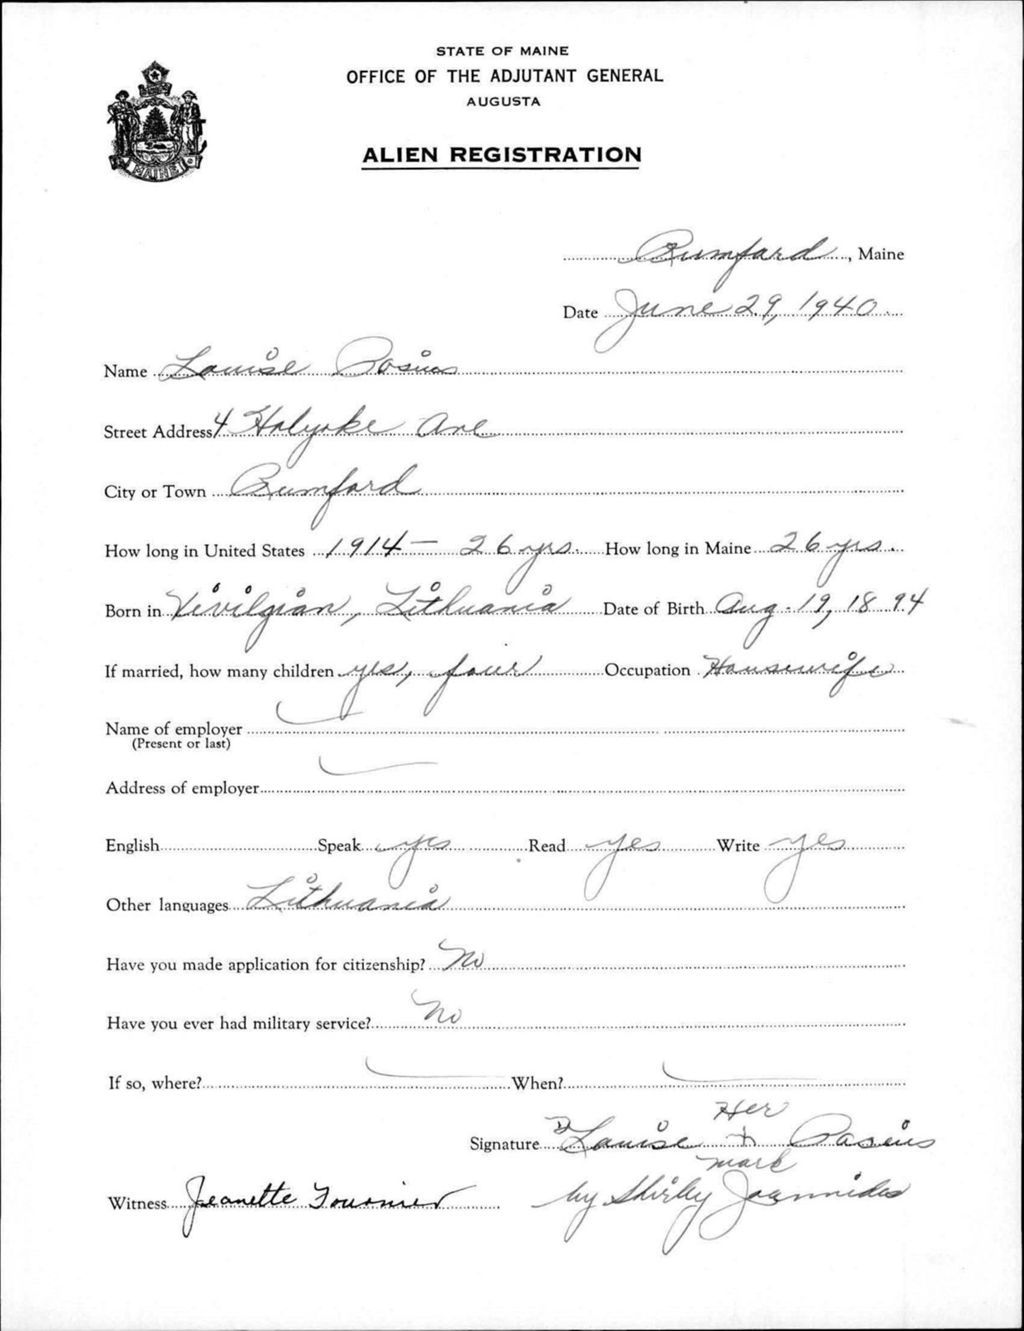 STATE OF MAINE
OFFICE OF THE ADJUTANT GENERAL
AUGUSTA
MAINE
ALIEN REGISTRATION
Rumford, Maine
Date June 29, 1940
Name Louise Rosius
Street Address 4 Holyoke Ave
City or Town Rumford
How long in United States 1914 — 26 yrs. How long in Maine 26 yrs.
Born in Vivilgian, Lithuania Date of Birth Aug. 19, 1894
If married, how many children yes, four Occupation Housewife
Name of employer
(Present or last)
Address of employer
English Speak yes Read yes Write yes
Other languages Lithuania
Have you made application for citizenship? No
Have you ever had military service? No
If so, where? When?
Her
Signature Louise X
mark
Witness Jeanette Fournier by Shirley Joannides